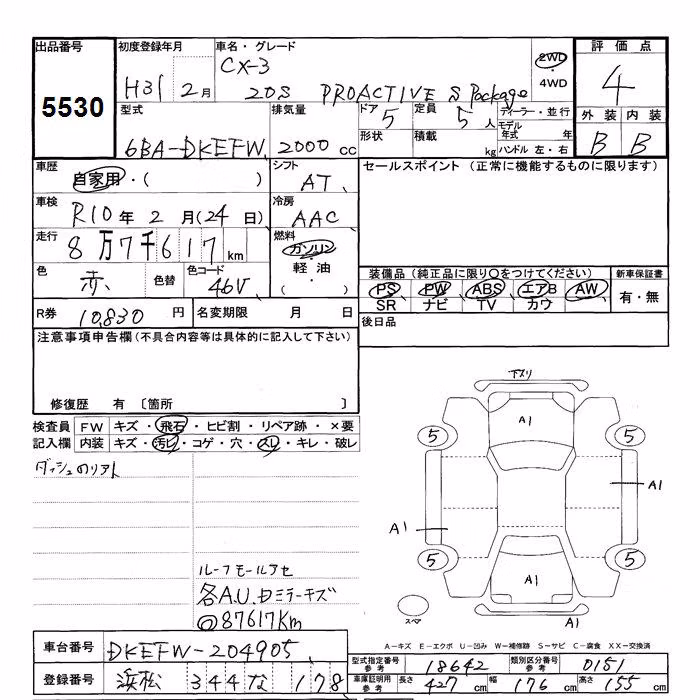 出品番号 初度登録年月 車名・グレード 評価点
5530 H31 2月 CX-3 20S PROACTIVE S Package 2WD・4WD 4
型式 排気量 ドア 5 定員 5人 ディーラー・並行 外装 内装
6BA-DKEFW 2000cc 形状 積載 kg モデル年式 年 ハンドル 左・右 B B
車歴 シフト セールスポイント (正常に機能するものに限ります)
自家用・( ) AT
車検 冷房
R10年2月(24日) AAC
走行 燃料
8万7千617km ガソリン・軽油・( )
色 赤 色替 色コード 46V
装備品(純正品に限り○をつけてください) 新車保証書
PS PW ABS エアB AW 有・無
SR ナビ TV カワ
R券 10,830円 名変期限 月 日 後日品
注意事項申告欄(不具合内容等は具体的に記入して下さい)
修復歴 有 〔箇所 〕
下スリ
検査員 FW キズ・飛石・ヒビ割・リペア跡・×要
記入欄 内装 キズ・汚レ・コゲ・穴・スレ・キレ・破レ
A1
5 5
A1
A1
5 5
A1
スペア
A1
ルーフモールアセ
各A.U.ロミラーキズ
@87617Km
A-キズ E-エクボ U-凹み W-補修跡 S-サビ C-腐食 XX-交換済
車台番号 DKEFW-204905
型式指定番号 参考 18642 類別区分番号 参考 0151
登録番号 浜松 344 な 178
車庫証明用 参考 長さ 427cm 幅 176cm 高さ 155cm